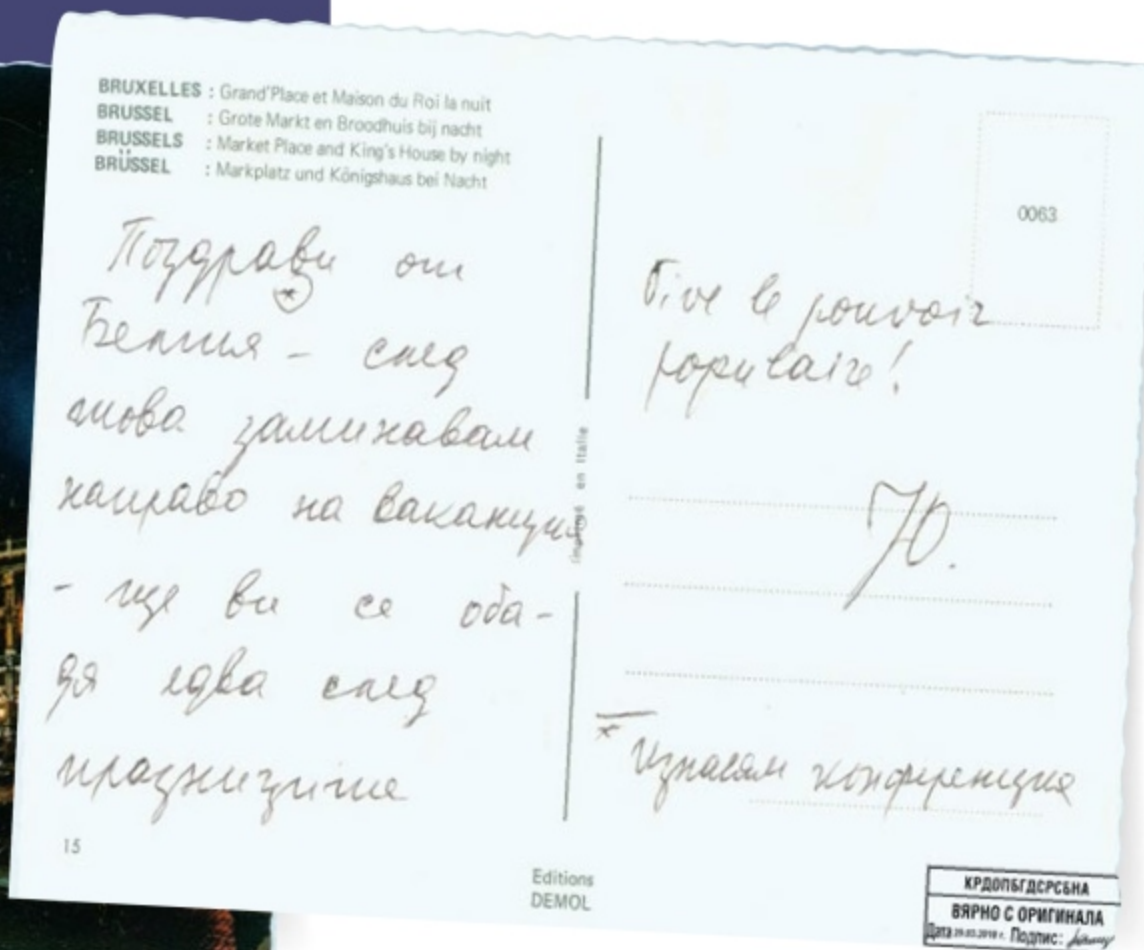 BRUXELLES : Grand'Place et Maison du Roi la nuit
BRUSSEL : Grote Markt en Broodhuis bij nacht
BRUSSELS : Market Place and King's House by night
BRÜSSEL : Markplatz und Königshaus bei Nacht
0063
Поздрави от
*
Белгия – след
това заминавам
направо на ваканция
– ще ви се оба-
дя едва след
празниците
Imprimé en Italie
Vive le pouvoir
populaire!
Ю.
* Изнасям конференция
15
Editions
DEMOL
КРДОПБГДСРСБНА
ВЯРНО С ОРИГИНАЛА
Дата Подпис: